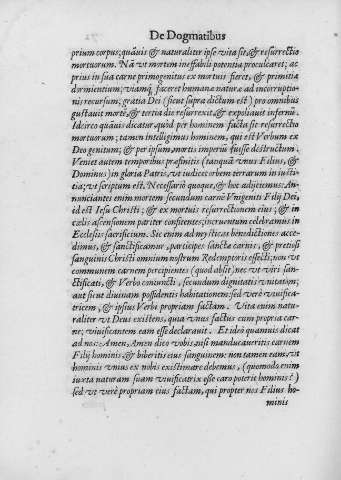 De Dogmatibus
prium corpus; quāuis & naturaliter ipse vita sit, & resurrectio
mortuorum. Nā vt mortem ineffabili potentia proculcaret; ac
prius in sua carne primogenitus ex mortuis fieret, & primitiæ
dormientium; viamq́ faceret humanæ naturæ ad incorruptio-
nis recursum; gratia Dei (sicut supra dictum est) pro omnibus
gustauit mortē, & tertia die resurrexit, & expoliauit infernū.
Idcirco quāuis dicatur quòd per hominem facta sit resurrectio
mortuorum; tamen intelligimus hominem, qui est Verbum ex
Deo genitum; & per ipsum, mortis imperiū fuisse destructum.
Veniet autem temporibus præfinitis (tanquā vnus Filius, &
Dominus) in gloria Patris, vt iudicet orbem terrarum in iusti-
tia; vt scriptum est. Necessariò quoque, & hoc adijcimus: An-
nunciantes enim mortem secundum carnē Vnigeniti Filij Dei,
id est Iesu Christi; & ex mortuis resurrectionem eius; & in
cælis ascensionem pariter confitentes; incruentum celebramus in
Ecclesiis sacrificium. Sic enim ad mysticas benedictiones acce-
dimus, & sanctificamur, participes sancta carnis, & pretiosi
sanguinis Christi omnium nostrum Redemptoris effecti; non vt
communem carnem percipientes (quod absit) nec vt viri san-
ctificati, & Verbo coniuncti, secundum dignitatis vnitatem;
aut sicut diuinam possidentis habitationem: sed verè viuifica-
tricem, & ipsius Verbi propriam factam. Vita enim natu-
raliter vt Deus existens, quia vnus factus cum propria car-
ne; viuificantem eam esse declarauit. Et idеò quamuis dicat
ad nos: Amen, Amen dico vobis, nisi manducaueritis carnem
Filij hominis, & biberitis eius sanguinem: non tamen eam, vt
hominis vnius ex nobis existimare debemus, (quomodo enim
iuxta naturam suam viuificatrix esse caro poterit hominis?)
sed vt verè propriam eius factam, qui propter nos Filius ho-
minis